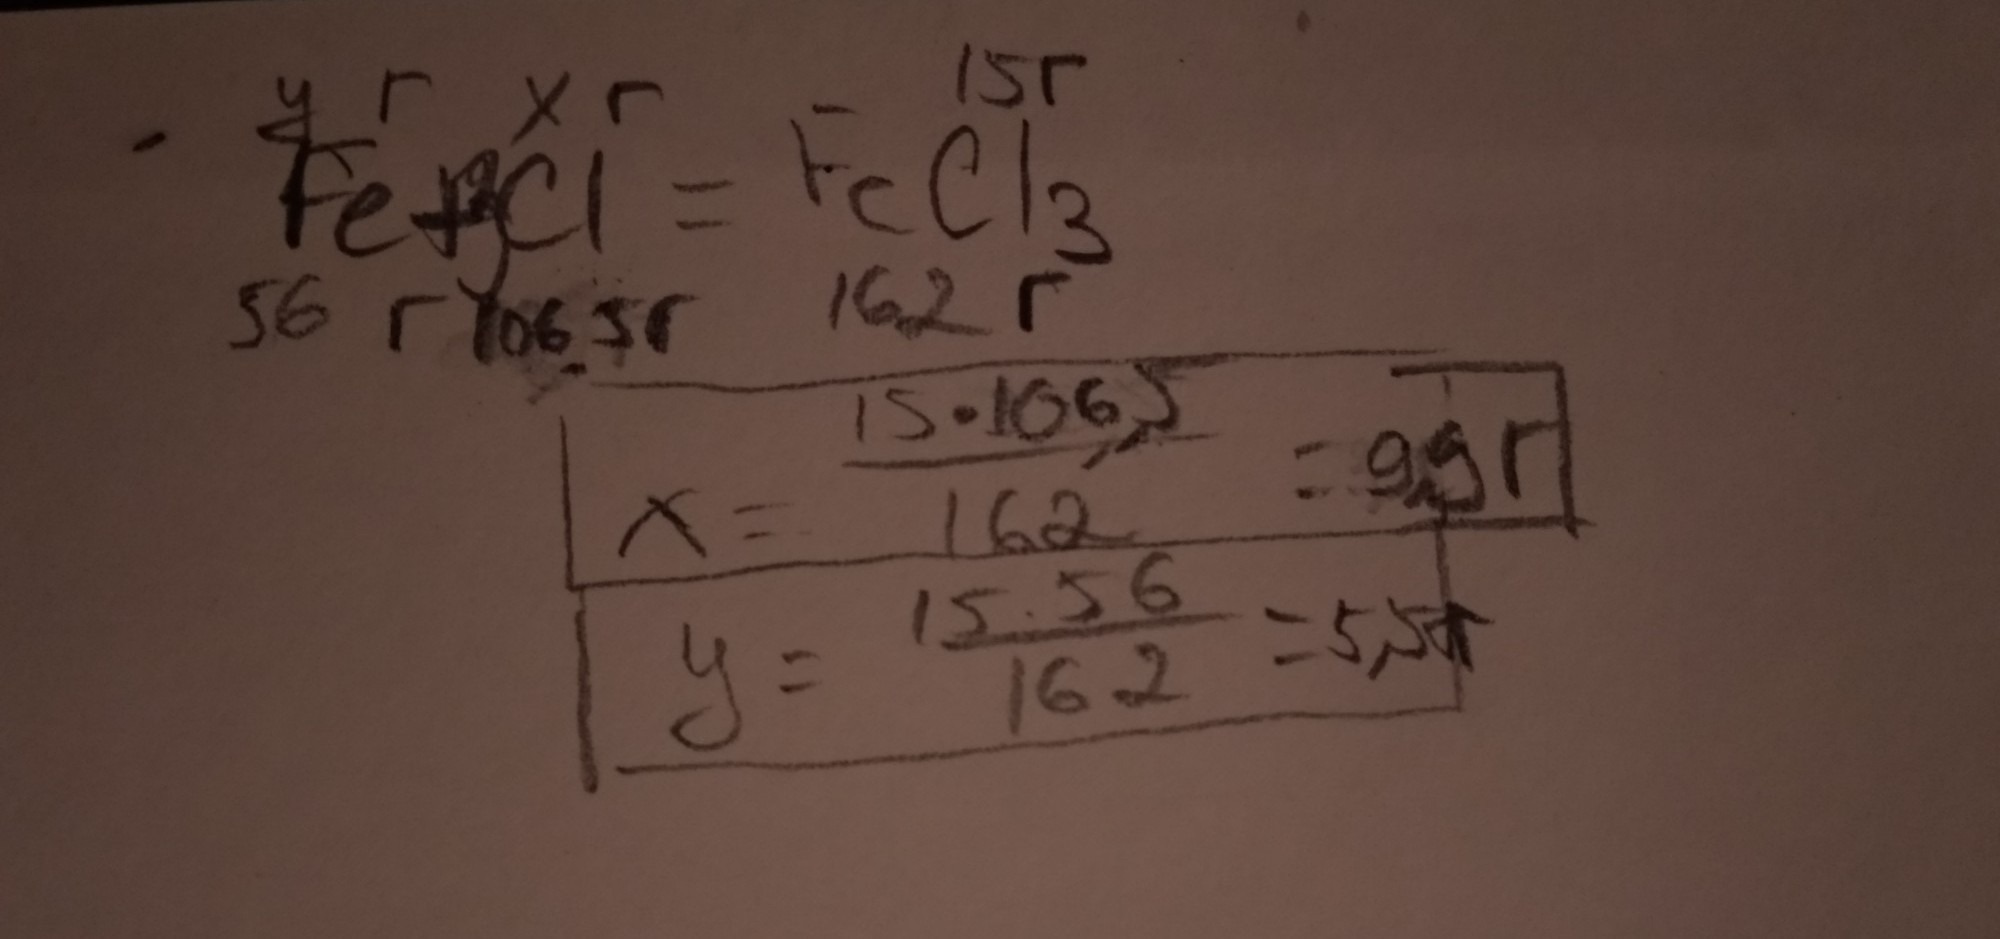 y г x г 15г
Fe+3Cl = FeCl3
56 г 106,5г 162 г
x = 15·106,5 / 162 = 9,9 г
y = 15·56 / 162 = 5,5г